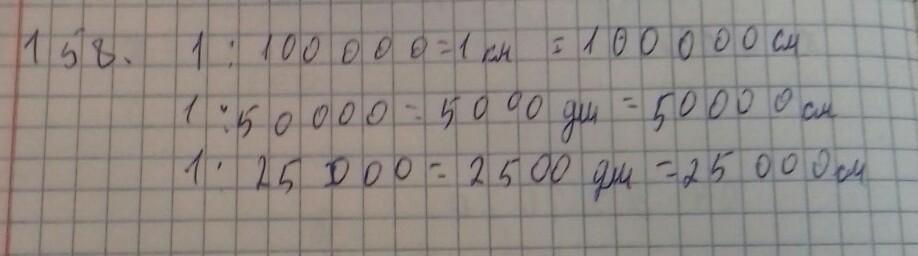 158. 1 : 100 000 = 1 км = 100 000 см
1 : 50 000 = 5000 дм = 50000 см
1 : 25 000 = 2500 дм = 25 000 см